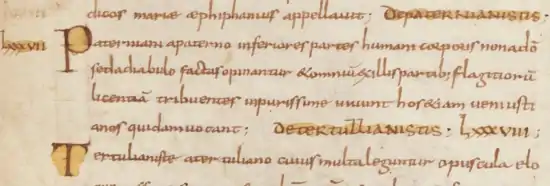 dicos mariae aephiphanius appellauit; DE PATERNIANISTIS.
LXXXVII Paterniani a paterno inferiores partes humani corporis non a dō
sed a diabulo factas opinantur & omniū ex illis partib; flagitiorū
licentiā tribuentes inpurissime uiuunt hos &iam uenusti
anos quidam uocant; DE TERTULLIANISTIS. LXXXVIII;
Tertulianiste a tertuliano cuius multa leguntur opuscula elo